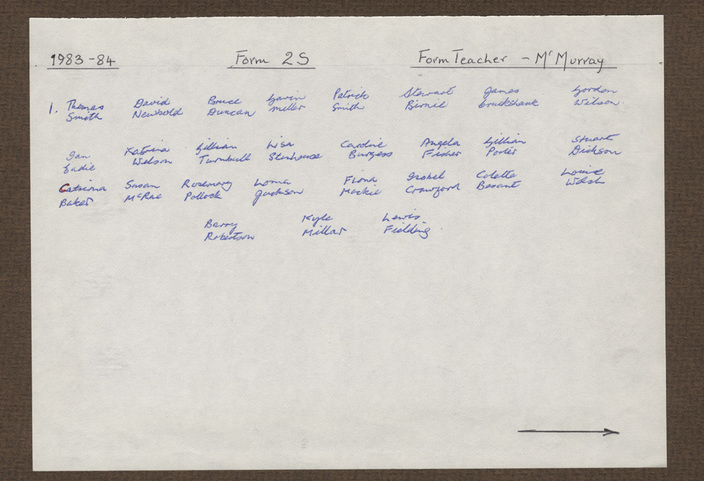 1983-84 Form 2S Form Teacher - Mr Murray
1. Thomas David Bruce Gavin Patrick Stewart James Gordon
Smith Newbold Duncan Miller Smith Birnie Cruickshank Wilson
Ian Katrina Gillian Lisa Caroline Angela Gillian Stuart
Eadie Wilson Turnbull Stenhouse Burgess Fisher Porter Dickson
Catriona Susan Rosemary Lorna Fiona Isobel Colette Louise
Baker McRae Pollock Jackson Mackie Crawford Besant Welsh
Barry Kyle Lewis
Robertson Millar Fielding